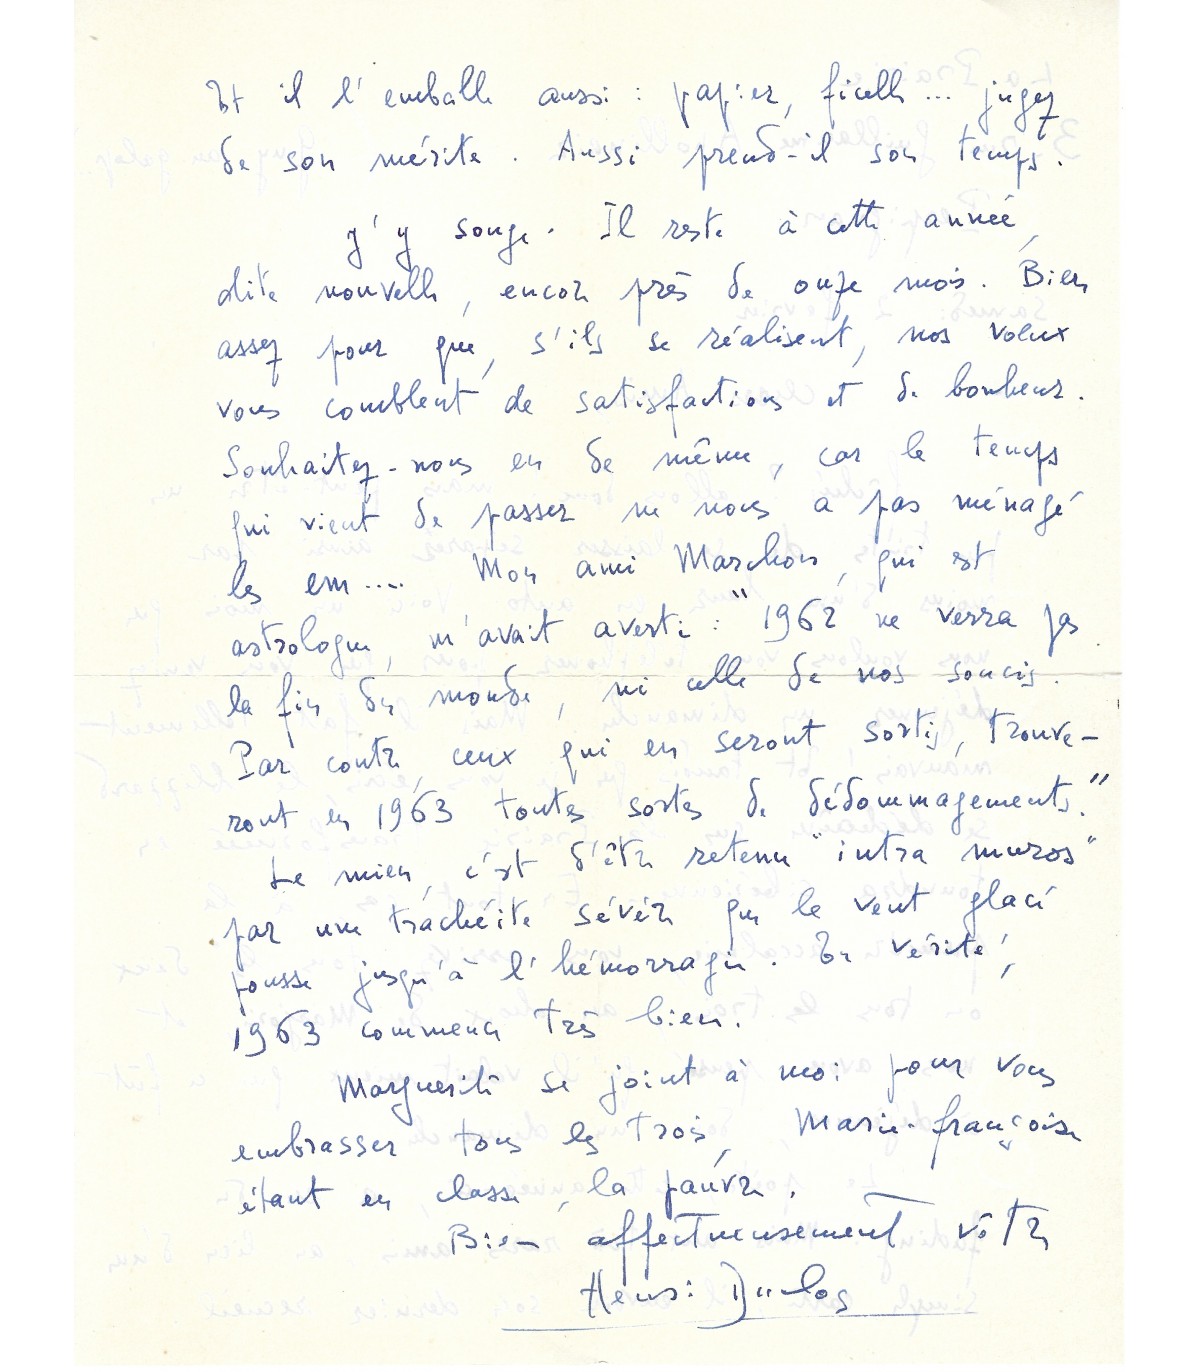 Et il l'emballe aussi : papier, ficelle ... jugez
de son mérite. Aussi prend-il son temps.
J'y songe. Il reste à cette année,
dite nouvelle, encore près de onze mois. Bien
assez pour que, s'ils se réalisent, nos voeux
vous comblent de satisfactions et de bonheur.
Souhaitez-nous en de même, car le temps
qui vient de passer ne nous a pas ménagé
les em.... Mon ami Marchon, qui est
astrologue, m'avait averti : "1962 ne verra pas
la fin du monde, ni celle de nos soucis.
Par contre, ceux qui en seront sortis, trouve-
ront en 1963 toutes sortes de dédommagements."
Le mien, c'est d'être retenu "intra muros"
par une trachéite sévère que le vent glacé
pousse jusqu'à l'hémorragie. En vérité,
1963 commence très bien.
Marguerite se joint à moi pour vous
embrasser tous les trois, Marie-françoise
étant en classe, la pauvre.
Bien affectueusement vôtre
Henri Duclos